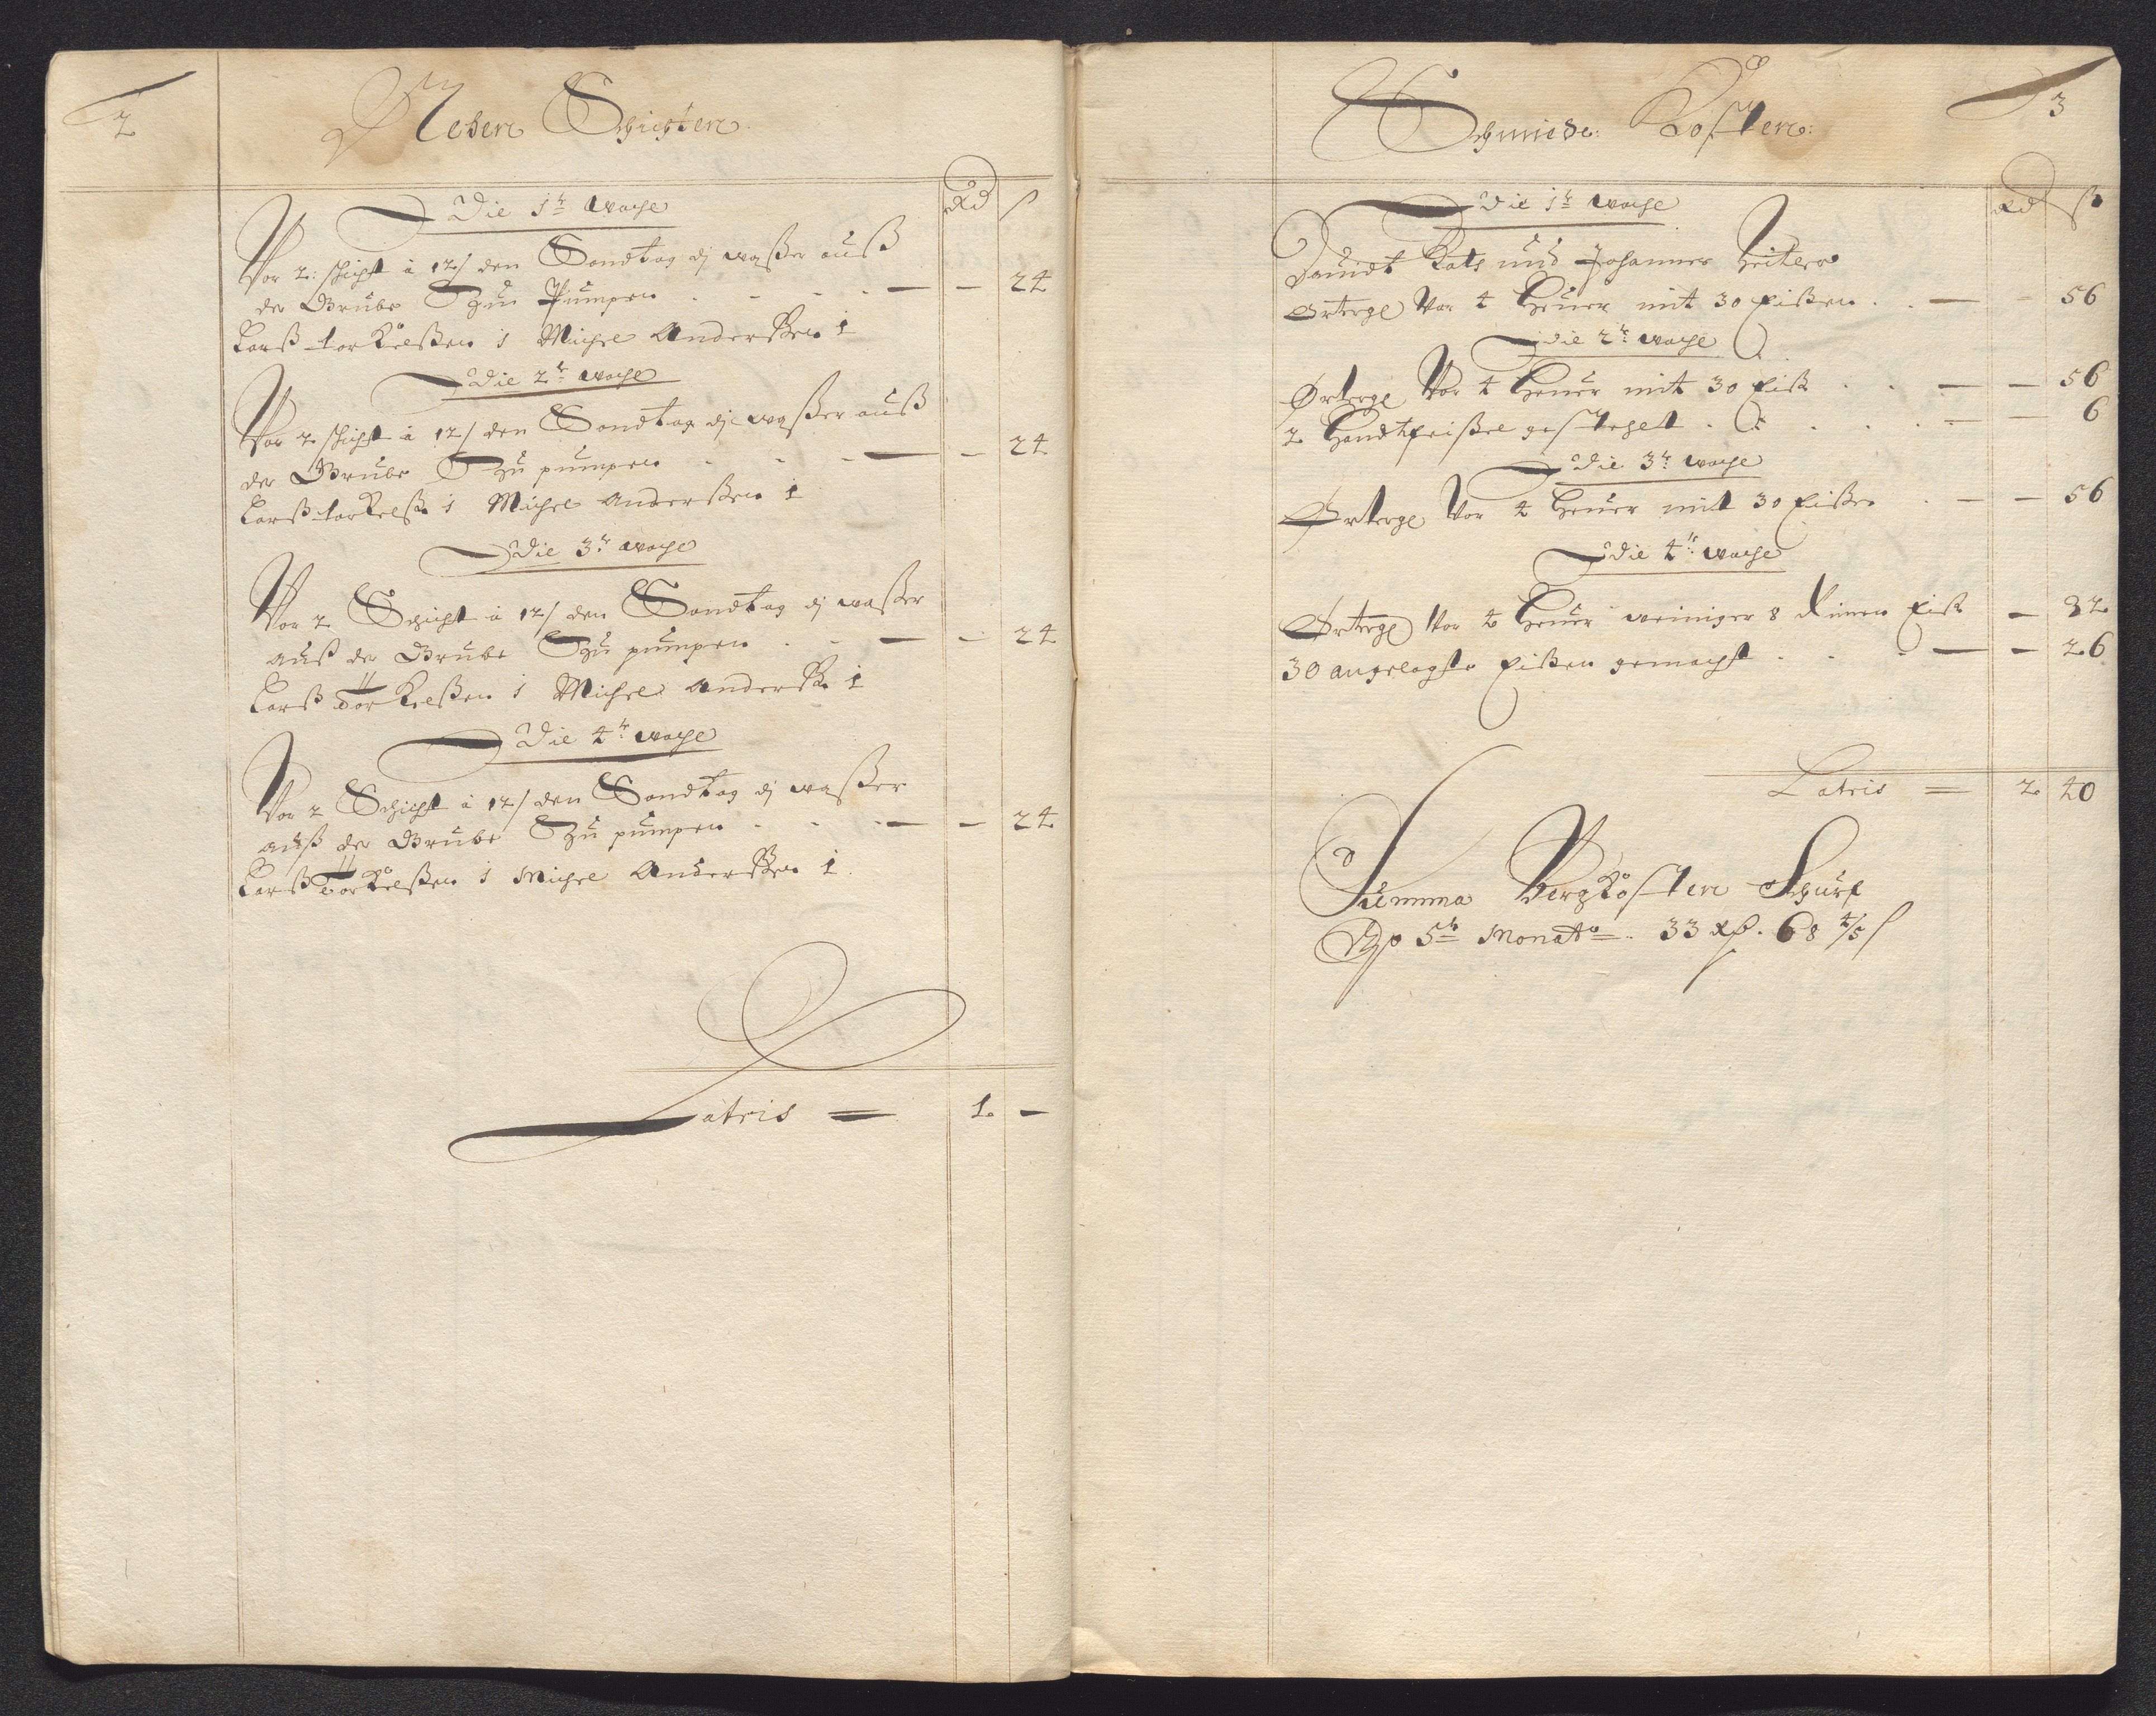 2
Neben Schichten
Rd ß
Die 1te Woche
Vor 2: schicht à 12 ß den Sondtag dz waßer auß
der Grube Zu Pumpen . . . . — — 24
Larß torkelßen 1 Michel Anderßen 1
Die 2te Woche
Vor 2 schicht à 12 ß den Sondtag dz waßer auß
der Grube Zu pumpen . . . — — 24
Larß torkelß. 1 Michel Anderßen 1
Die 3te Woche
Vor 2 Schicht à 12 ß den Sondtag dz waßer
auß der Grube Zu pumpen . . — — 24
Larß Torkelßen 1 Michel Anderß. 1
Die 4te Woche
Vor 2 Schicht à 12 ß den Sondtag dz waßer
auß der Grube Zu pumpen . . . — — 24
Larß Torkelßen 1 Michel Anderßen 1
Latris = 1. —
3
Schmiede: Kosten:
Rd ß
Die 1te Woche
und Johannes
Vor 4 Heuer mit 30 Eißen . . — — 56
Die 2te Woche
Vor 4 Heuer mit 30 Eiß . . — — 56
2 gestehelt . . . . . — — 6
Die 3te Woche
Vor 4 Heuer mit 30 Eißen . — — 56
Die 4te Woche
Vor 4 Heuer weiniger 8 Eiß — 32
30 angelegte Eißen gemacht . . . — — 26
Latris = 2. 40
Summa Bergkosten Schurf
5te Monat = . 33 Rß. 68 4/5 ß